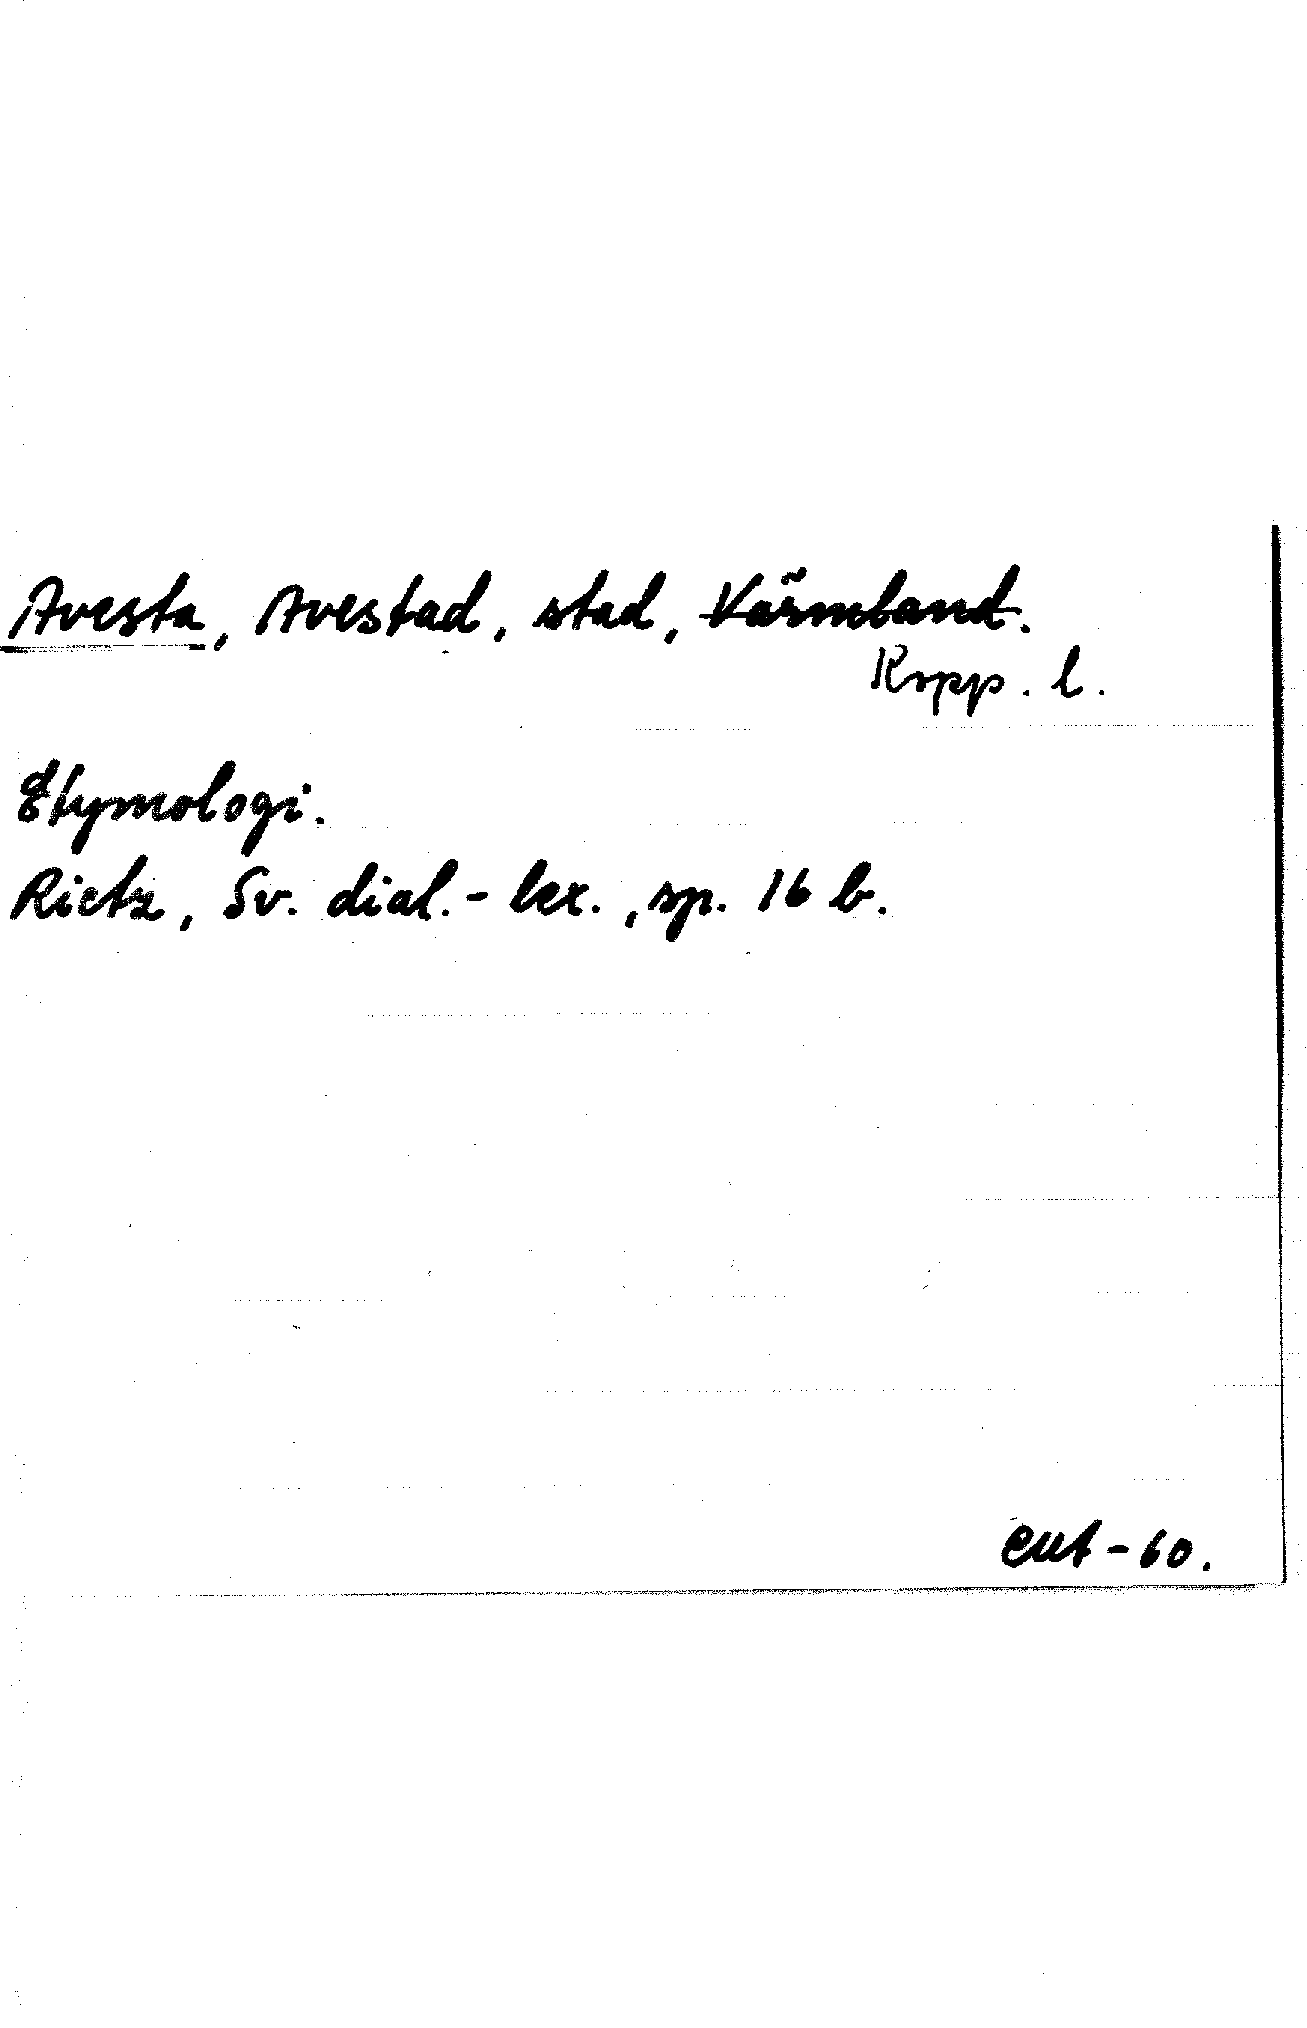 Avesta, Avestad, stad, Värmland.
Kopp. l.
Etymologi.
Rietz, Sv. dial.-lex., sp. 16 b.
eut-60.